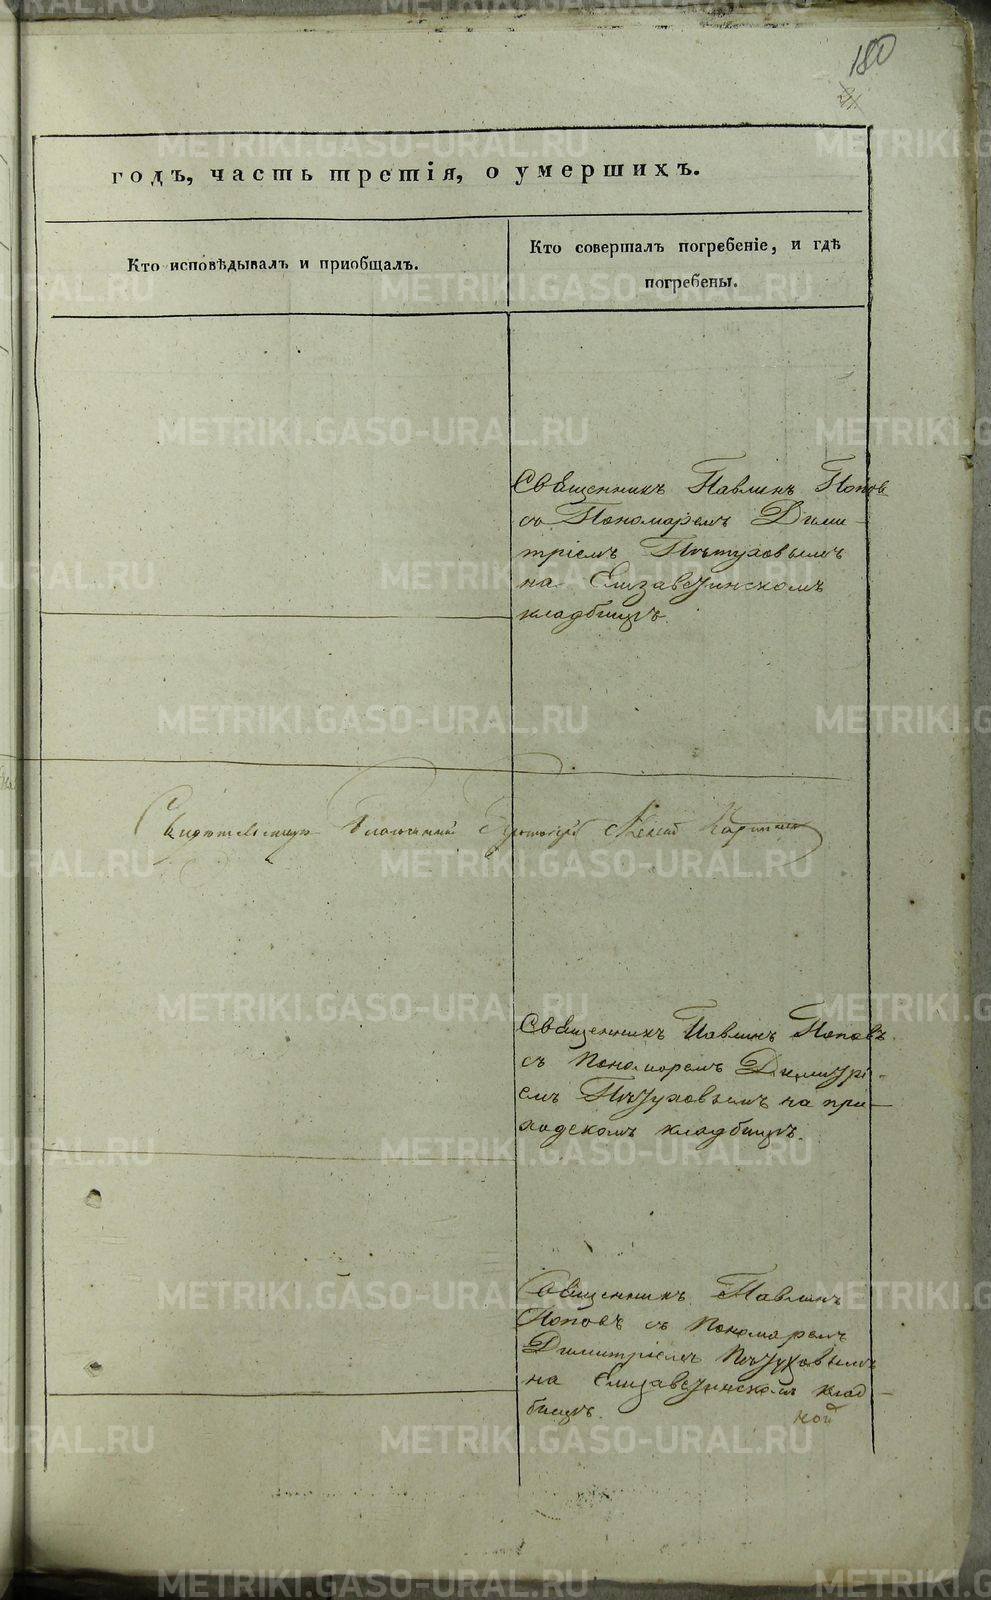 180
годъ, часть третія, о умершихъ.
Кто исповѣдывалъ и приобщалъ.
Кто совершалъ погребеніе, и гдѣ
погребены.
Священникъ Павлинъ Поповъ
съ Пономаремъ Дими-
тріемъ Пѣтуховымъ
на Елизаветинскомъ
кладбищѣ.
Благочинный
Священникъ Павлинъ Поповъ
съ Пономоремъ Димитрі-
емъ Пѣтуховымъ на при-
ходскомъ кладбищѣ.
Священникъ Павлинъ
Поповъ съ Пономаремъ
Димитріемъ Пѣтуховымъ
на Елизаветинскомъ клад-
бищѣ.
METRIKI.GASO-URAL.RU